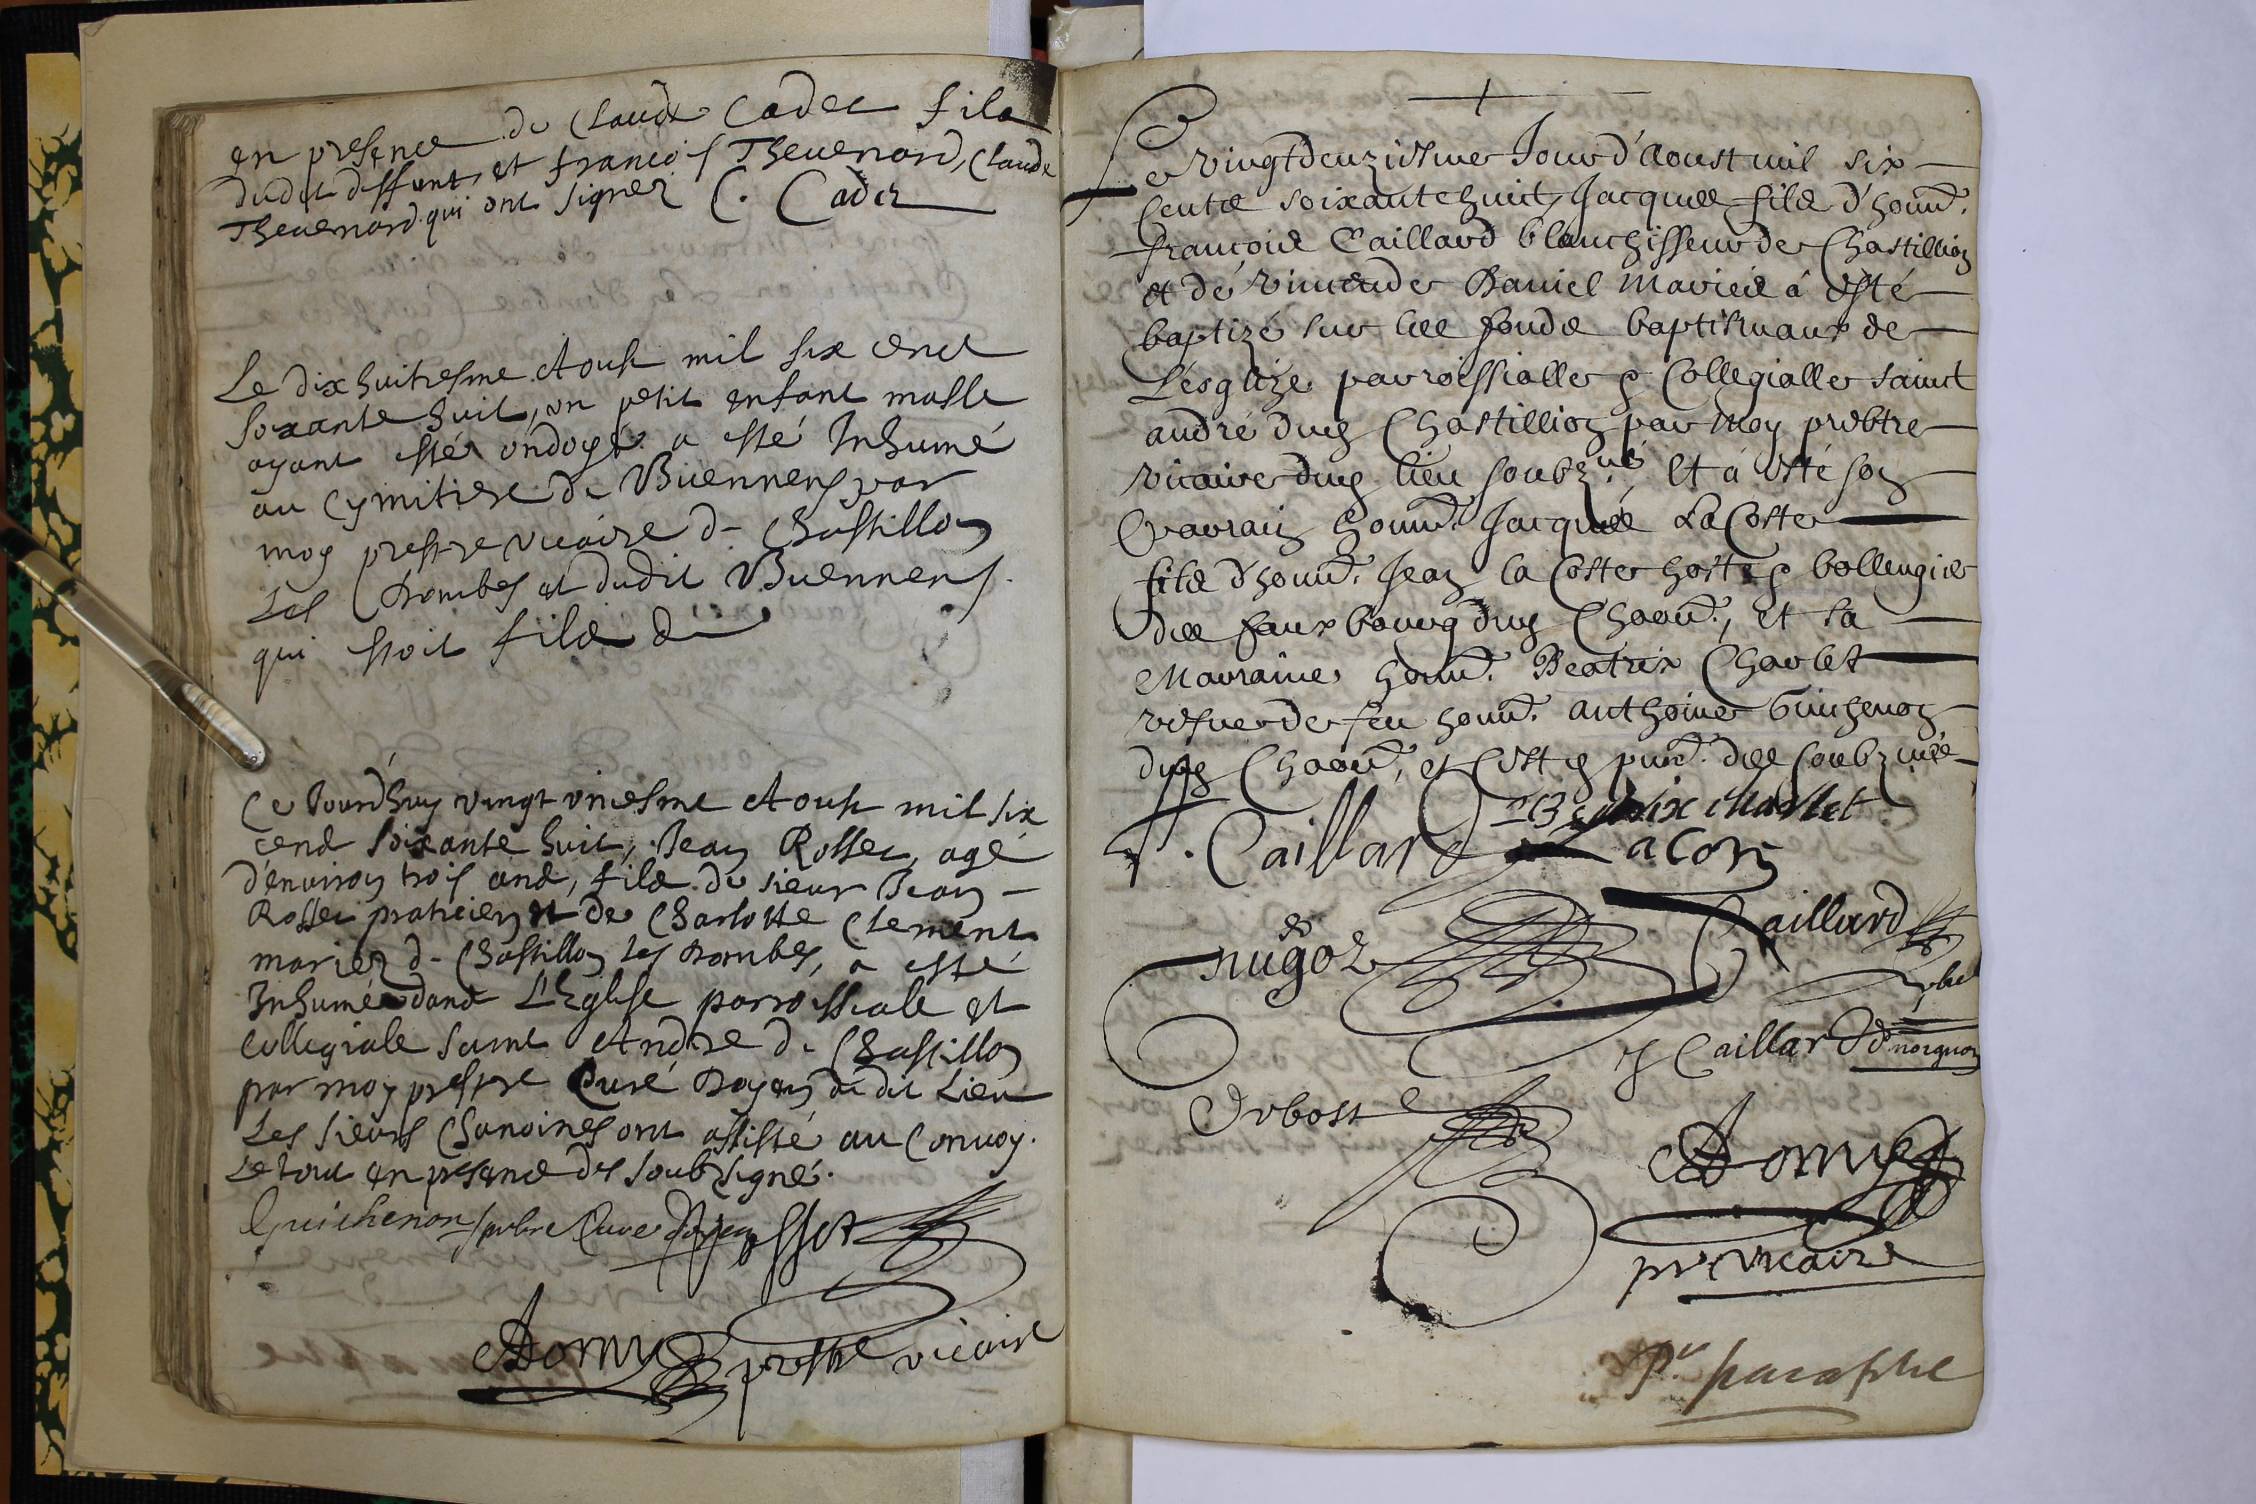 en presence de Claude Cadet fils
dudit deffunt, et francois Thevenard, Claude
Thevenard qui ont signez C. Cadet
Le dix huitiesme Aoust mil six cent
soixante huit, un petit enfant masle
ayant esté ondoyé a esté Inhumé
au Cymitiere de Buennens par
moy prestre vicaire de Chastillon
Les Dombes et dudit Buennens.
qui estoit fils de
Ce Jourdhuy vingt uniesme Aoust mil six
cens soixante huit, Jean Rosset, agé
d'environ trois ans, fils de sieur Jean
Rosset praticien et de Charlotte Clement
mariez de Chastillon les Dombes, a esté
Inhumé dans L'Eglise parroissiale et
collegiale saint Andre de Chastillon
par moy prestre Curé Doyen du dit Lieu
Les sieurs Chanoines ont assisté au Convoy.
Le tout en presence des soubsignés.
Guichenon prebre Curé doyen Rosset
Domy prestre vicaire
Le vingtdeuziesme Jour d'Aoust mil six
Cents soixante huit, Jacques fils d'honn.
françois Caillard blanchisseur de Chastillion
et de Daniel Mariés á esté
baptizé sur les fonds baptismaux de
L'ésglize parroissialle & Collegialle sainct
andré dug Chastillion par Moy prebtre
vicaire dug lieu soubz.né, Et á esté son
Parrain honn. Jacques La Coste
fils d'honn. Jean la Coste hoste & bollengier
des faux bourg dug Chaon., et sa
Marraine honn. Beatrix Charlet
vefve de feu honn. anthoine Guichenon
dug Chaon., et C'est en pnce. des soubz.nés
F. Caillard Beatrix Charlet
La Coste
nugoz Caillard
J Caillard
Orbost
Domy
pre vicaire
Pr. paraphe